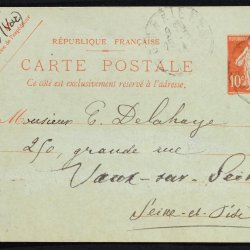 (Var)
RÉPUBLIQUE FRANÇAISE
CARTE POSTALE
Ce côté est exclusivement réservé à l'adresse.
10c
Monsieur E. Delahaye
250, grande rue
Vaux-sur-Seine
Seine-et-Oise